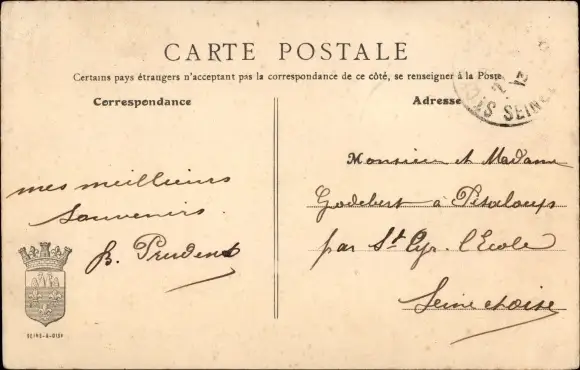 CARTE POSTALE
Certains pays étrangers n'acceptant pas la correspondance de ce côté, se renseigner à la Poste
Correspondance
Adresse
mes meilleurs
souvenirs.
B. Prudent
Monsieur et Madame
Godebert à Pissaloup
par St Cyr. l'Ecole
Seine et oise
SEINE
SEINE-&-OISE